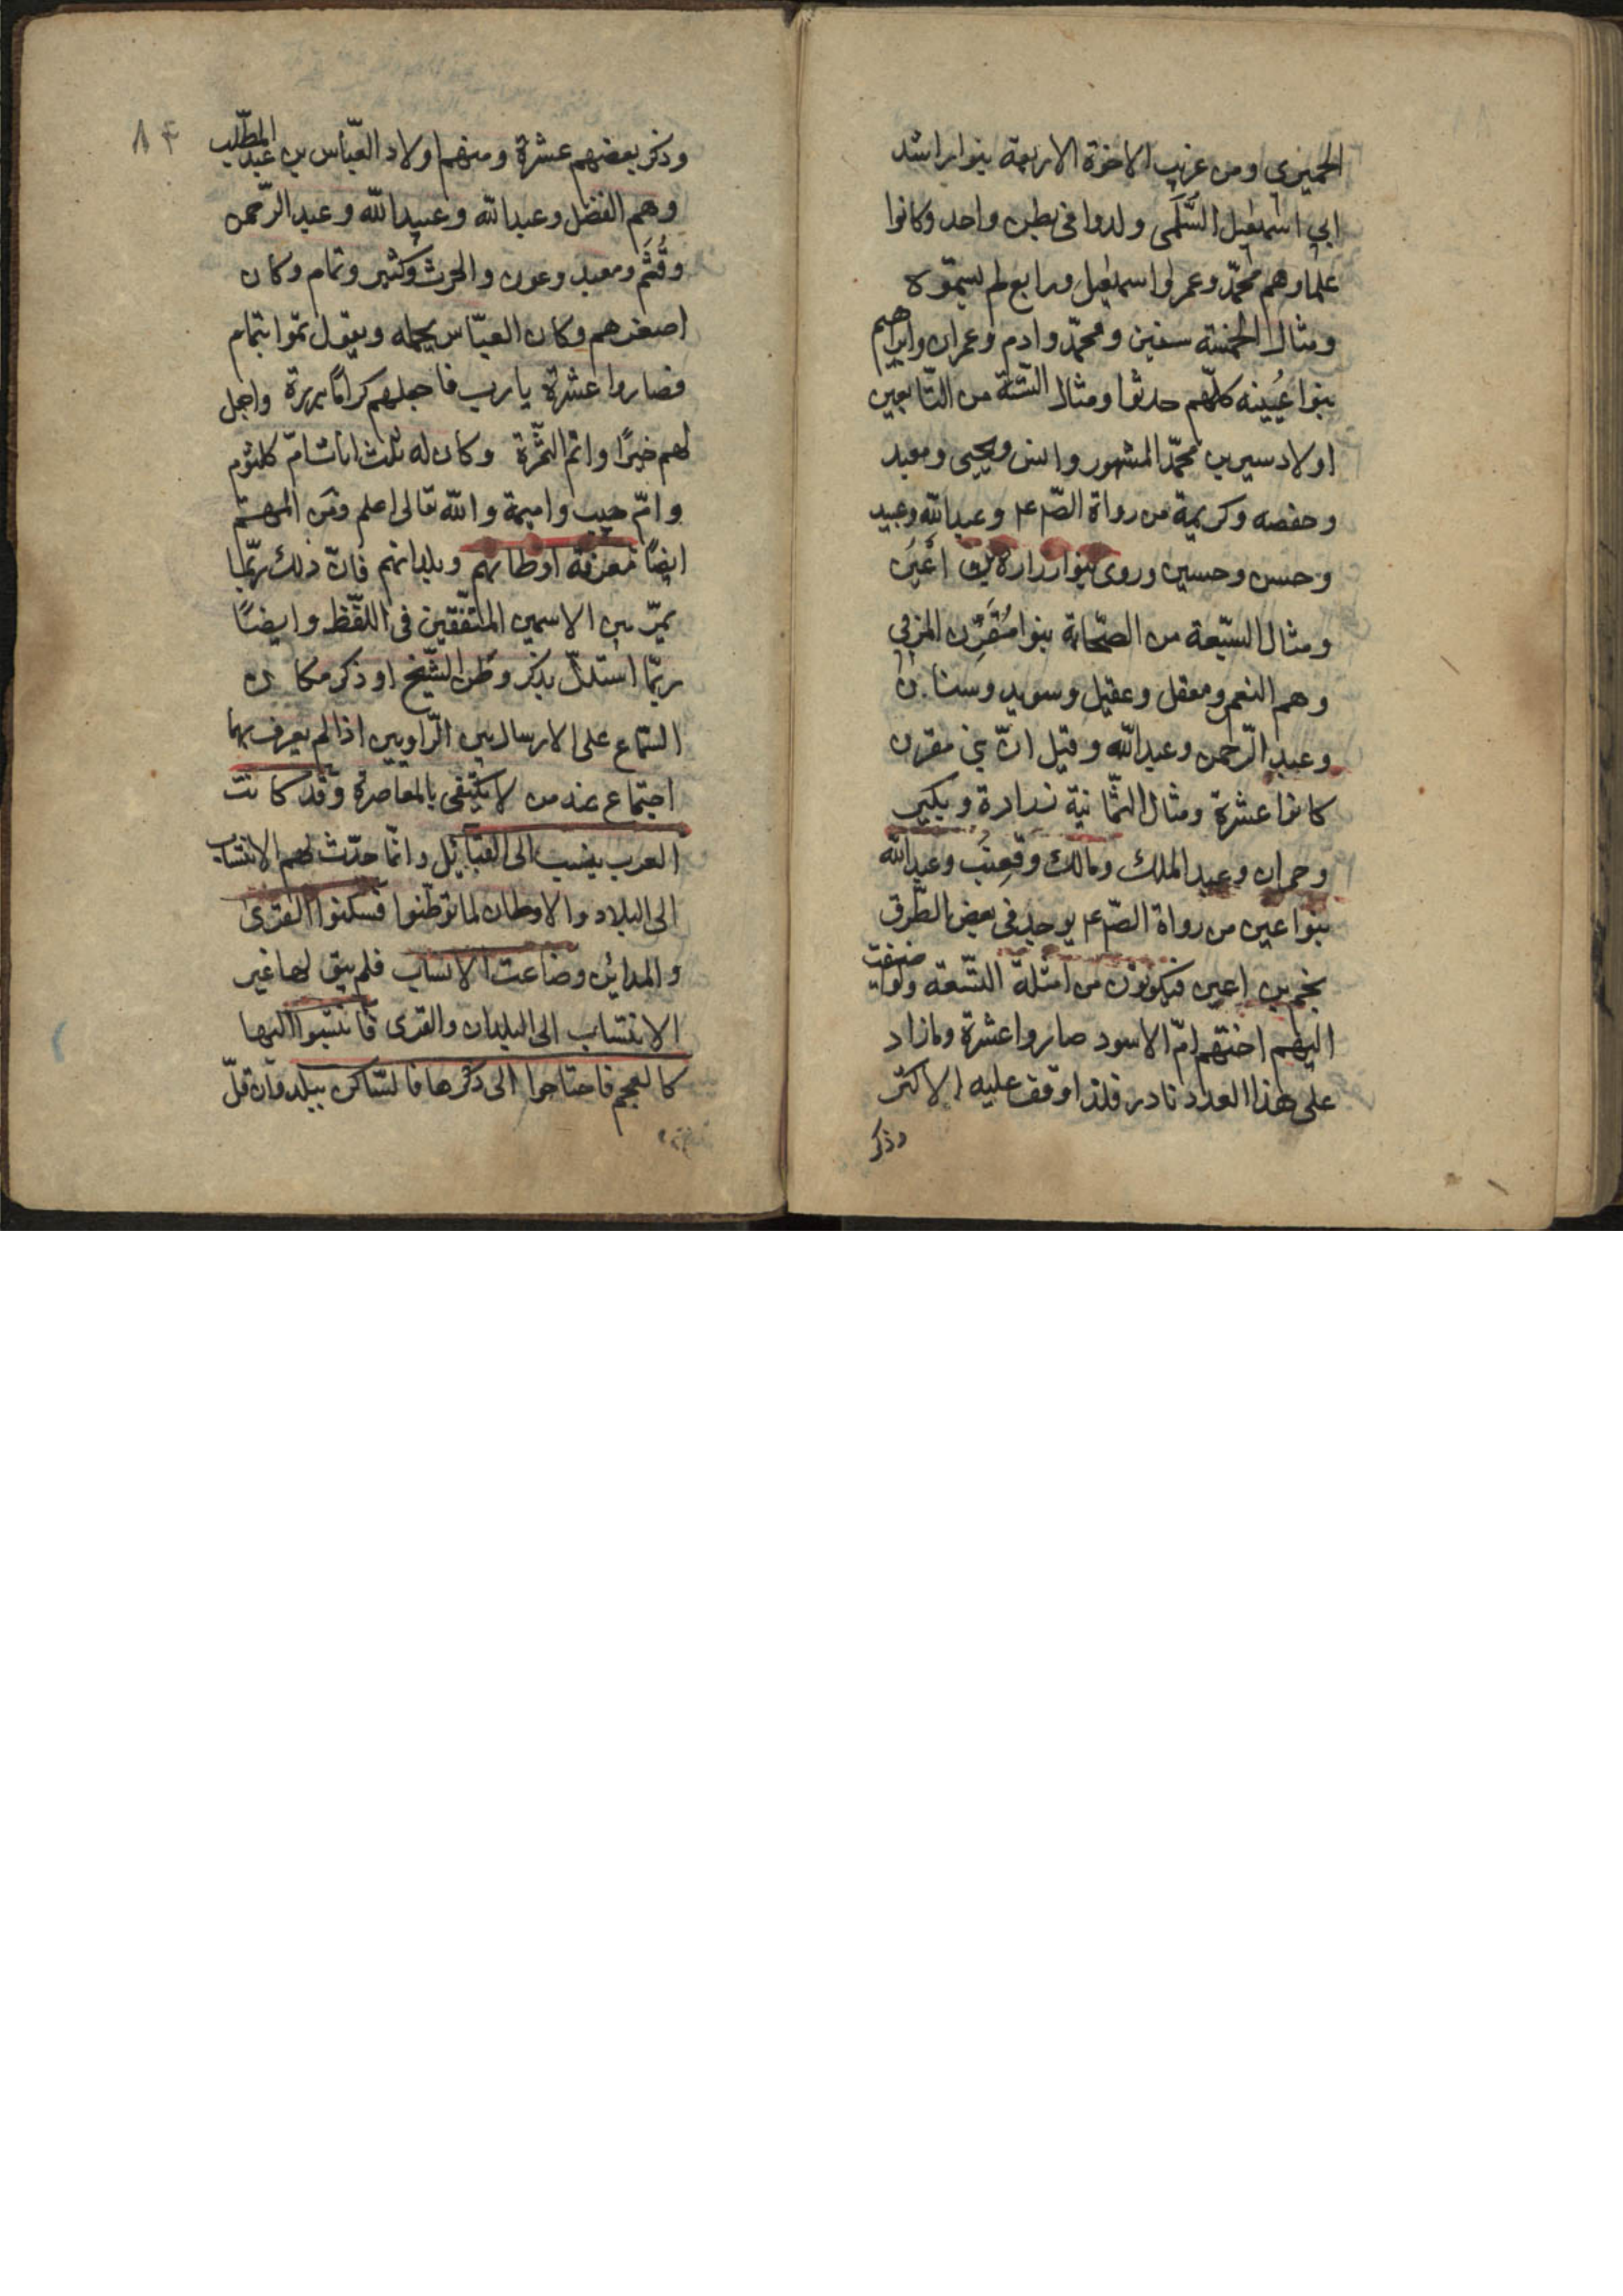 الحميري ومن غريب الاخوة الاربعة بنوا راشد
ابي اسمعيل السلمي ولدوا في بطن واحد وكانوا
علما وهم محمّد وعمر واسمعيل ورابع لم يسمّوه
ومثال الخمسة سفين ومحمّد وادم وعمران وابراهيم
بنوا عُيينه كلّهم حدثوا ومثال الستّة من التّابعين
اولاد سيرين محمّد المشهور وانس ويحيى ومعبد
وحفصه وكريمة من رواة الصّ ع م وعبد الله وعبيد
وحسن وحسين وروى بنوا زرارة بن اَعْيَن
ومثال السّبعة من الصّحابة بنوا مُقَرِّن المزني
وهم النعم ومعقل وعقيل وسويد وسنان
وعبد الرّحمن وعبد الله وقيل انّ بني مقرن
كانوا عشرة ومثال الثّمانية زرارة وبكير
وحمران وعبد الملك ومالك وقعنب وعبد الله
بنوا عين من رواة الصّ ع م يوجد في بعض الطّرق
نجم بن اعين فيكونون من امثلة التّسعة ولو اضيفت
اليهم اختهم امّ الاسود صاروا عشرة وما زاد
على هذا العدد نادر فلذا وقف عليه الاكثر
وذكر
٨٤
وذكر بعضهم عشرة ومنهم اولاد العبّاس بن عبد المطّلب
وهم الفضل وعبد الله وعبيد الله وعبد الرّحمن
وقُثَم ومعبد وعون والحرث وكثير وتمام وكان
اصغرهم وكان العبّاس يحمله ويقول تمّوا بتمام
فصاروا عشرة يا رب فاجعلهم كرامًا بررة واجعل
لهم خيرًا وانم الثّمرة وكان له ثلث اناث امّ كلثوم
وامّ حبيب واميمة والله تعالى اعلم ومن المهم
ايضًا معرفة اوطانهم وبلدانهم فانّ ذلك ربّما
يميّز بين الاسمين المتّفقين في اللّفظ وايضًا
ربّما استدلّ بذكر وطن الشّيخ او ذكر مكان
السّماع على الارسال بين الرّاويين اذا لم يعرف لهما
اجتماع عند من لا يكتفي بالمعاصرة وقد كانت
العرب ينسب الى القبائل وانّما حدث لهم الانتساب
الى البلاد والاوطان لما توطّنوا فسكنوا القرى
والمدائن وضاعت الانساب فلم يبق لها غير
الانتساب الى البلدان والقرى فانتسبوا اليها
كالعجم فاحتاجوا الى ذكرها فالسّاكن ببلد وان قلّ